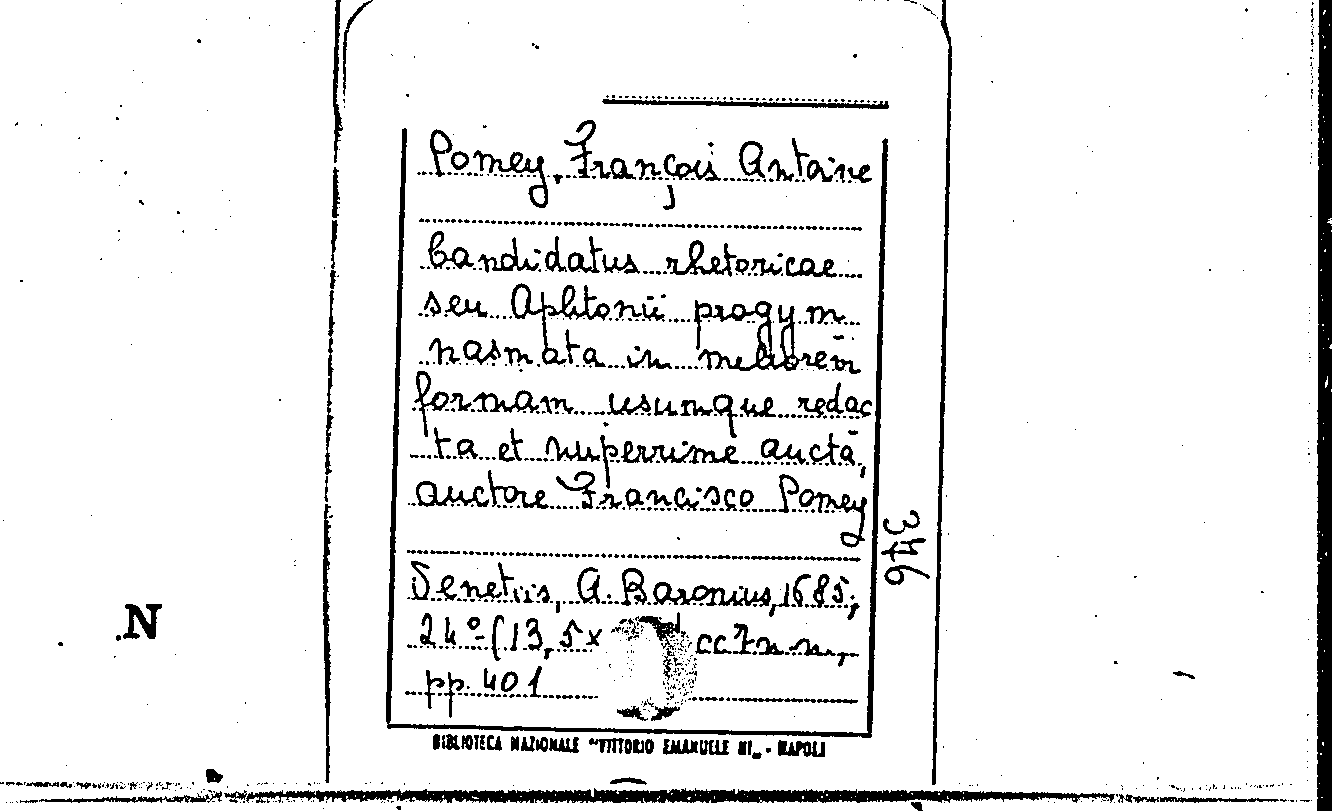 Pomey, François Antoine
Candidatus rhetoricae
seu Aphtonii progym
nasmata in meliorem
formam usumque redac
ta et nuperrime aucta,
auctore Francisco Pomey
Venetiis, A. Baronius, 1685;
24º-(13,5x cc7n.n.,
pp. 401
346
N
BIBLIOTECA NAZIONALE "VITTORIO EMANUELE III„ - NAPOLI